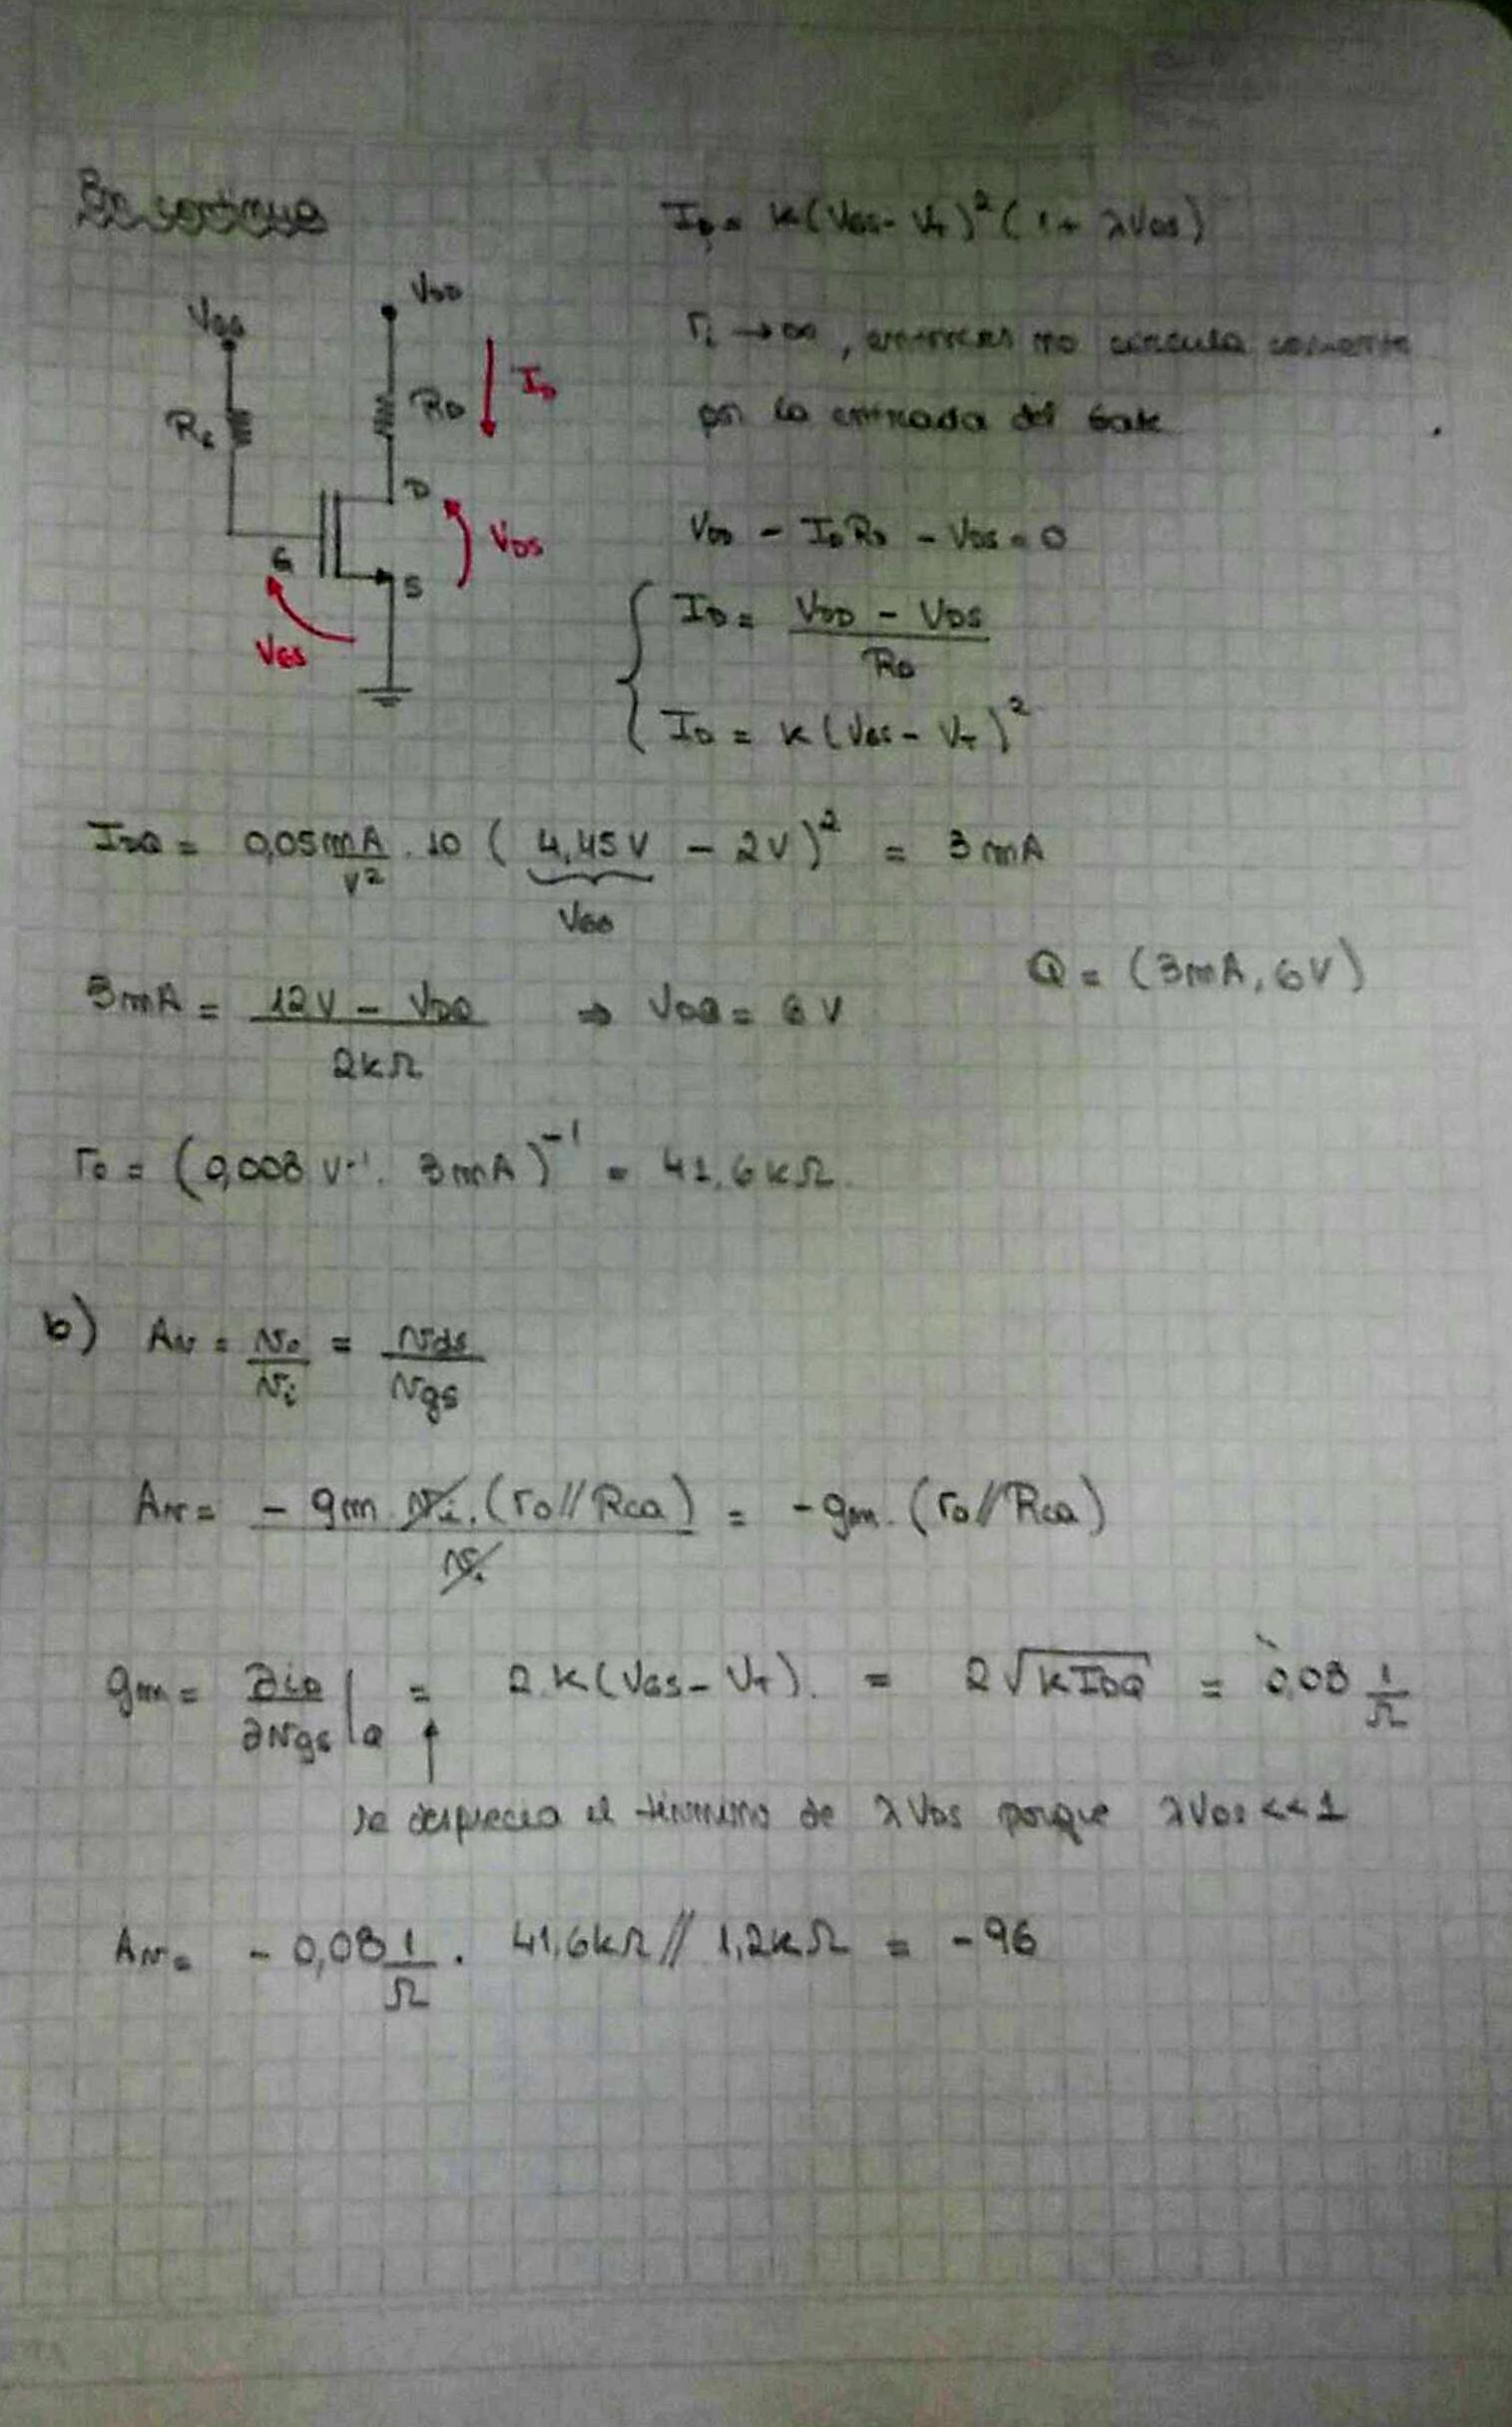 En continua
I_D = k(V_GS - V_T)² (1 + λV_DS)
V_GG
V_DD
R_D
I_D
R_G
D
G
S
V_DS
V_GS
r_i → ∞, entonces no circula corriente
por la entrada del Gate
V_DD - I_D R_D - V_DS = 0
I_D = (V_DD - V_DS) / R_D
I_D = k (V_GS - V_T)²
I_DQ = 0,05 mA/V² . 10 ( 4,45V - 2V )² = 3 mA
V_GG
3mA = (12V - V_DQ) / 2kΩ ⇒ V_DQ = 6V
Q = (3mA, 6V)
r_o = (0,008 V⁻¹ . 3mA)⁻¹ = 41,6kΩ.
b) A_v = v_o / v_i = v_ds / v_gs
A_v = - gm . v_i . (r_o // R_ca) / v_i = - gm . (r_o // R_ca)
gm = ∂i_D / ∂v_gs |_Q = 2.k(V_GS - V_T). = 2√(k I_DQ) = 0,08 1/Ω
se desprecia el término de λV_DS porque λV_DS << 1
A_v = - 0,08 1/Ω . 41,6kΩ // 1,2kΩ = - 96